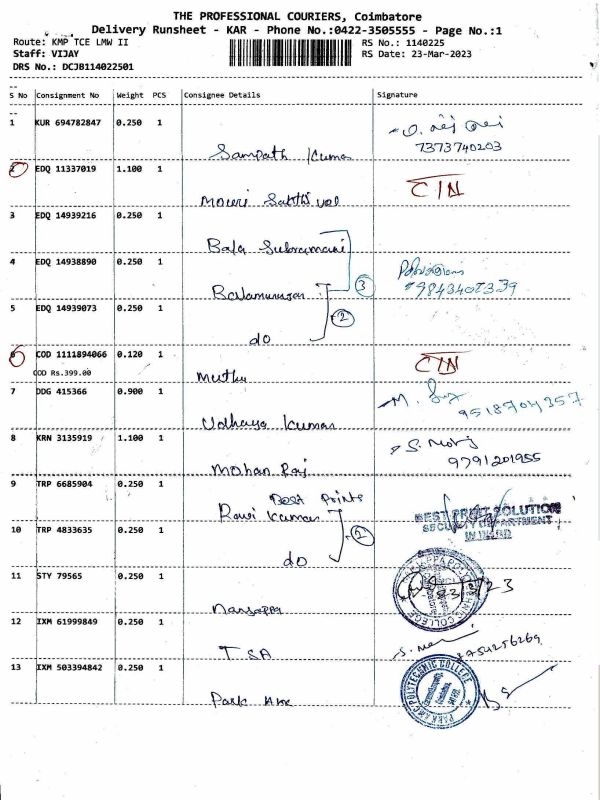 THE PROFESSIONAL COURIERS, Coimbatore
Delivery Runsheet - KAR - Phone No.:0422-3505555 - Page No.:1
Route: KMP TCE LMW II
RS No.: 1140225
Staff: VIJAY
RS Date: 23-Mar-2023
DRS No.: DCJB114022501
S No Consignment No Weight PCS Consignee Details Signature
1 KUR 694782847 0.250 1
7373740203
Sampath Kumar
2 EDQ 11337019 1.100 1 CIN
Mouri Sakthivel
3 EDQ 14939216 0.250 1
Bala Subramani
4 EDQ 14938890 0.250 1
Balamurugan 3
5 EDQ 14939073 0.250 1 2
do
6 COD 1111894066 0.120 1 CIN
COD Rs.399.00
Muthu
7 DDG 415366 0.900 1 M.
9518704357
Udhaya Kumar
8 KRN 3135919 1.100 1 S.
9791201955
Mohan Raj
9 TRP 6685904 0.250 1
Best Prints
Ravi Kumar
BEST PRINT SOLUTION
SECURITY DEPARTMENT
INWARD
10 TRP 4833635 0.250 1 2
do
11 STY 79565 0.250 1
12 IXM 61999849 0.250 1
8754256269
TSA
13 IXM 503394842 0.250 1
POLYTECHNIC COLLEGE
Park Ave